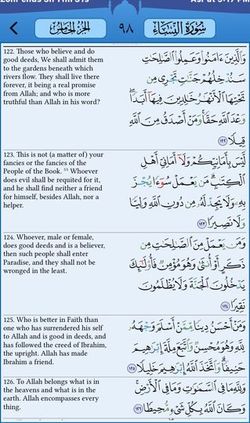 الجزء الخامس
٩٨
سورة النساء
122. Those who believe and do
good deeds, We shall admit them
to the gardens beneath which
rivers flow. They shall live there
forever, it being a real promise
from Allah; and who is more
truthful than Allah in his word?
وَالَّذِينَ ءَامَنُوا۟ وَعَمِلُوا۟ الصَّـٰلِحَـٰتِ
سَنُدْخِلُهُمْ جَنَّـٰتٍ تَجْرِى مِن
تَحْتِهَا الْأَنْهَـٰرُ خَـٰلِدِينَ فِيهَآ أَبَدًا
وَعْدَ اللَّهِ حَقًّا وَمَنْ أَصْدَقُ مِنَ اللَّهِ
قِيلًا ١٢٢
123. This is not (a matter of) your
fancies or the fancies of the
People of the Book. Whoever
does evil shall be requited for it,
and he shall find neither a friend
for himself, besides Allah, nor a
helper.
لَّيْسَ بِأَمَانِيِّكُمْ وَلَآ أَمَانِىِّ أَهْلِ
الْكِتَـٰبِ مَن يَعْمَلْ سُوٓءًا يُجْزَ
بِهِۦ وَلَا يَجِدْ لَهُۥ مِن دُونِ اللَّهِ وَلِيًّا
وَلَا نَصِيرًا ١٢٣
124. Whoever, male or female,
does good deeds and is a believer,
then such people shall enter
Paradise, and they shall not be
wronged in the least.
وَمَن يَعْمَلْ مِنَ الصَّـٰلِحَـٰتِ مِن
ذَكَرٍ أَوْ أُنثَىٰ وَهُوَ مُؤْمِنٌ فَأُو۟لَـٰٓئِكَ
يَدْخُلُونَ الْجَنَّةَ وَلَا يُظْلَمُونَ
نَقِيرًا ١٢٤
125. Who is better in Faith than
one who has surrendered his self
to Allah and is good in deeds, and
has followed the creed of Ibrahim,
the upright. Allah has made
Ibrahim a friend.
وَمَنْ أَحْسَنُ دِينًا مِّمَّنْ أَسْلَمَ وَجْهَهُۥ
لِلَّهِ وَهُوَ مُحْسِنٌ وَاتَّبَعَ مِلَّةَ إِبْرَٰهِيمَ
حَنِيفًا وَاتَّخَذَ اللَّهُ إِبْرَٰهِيمَ خَلِيلًا ١٢٥
126. To Allah belongs what is in
the heavens and what is in the
earth. Allah encompasses every
thing.
وَلِلَّهِ مَا فِى السَّمَـٰوَٰتِ وَمَا فِى الْأَرْضِ
وَكَانَ اللَّهُ بِكُلِّ شَىْءٍ مُّحِيطًا ١٢٦